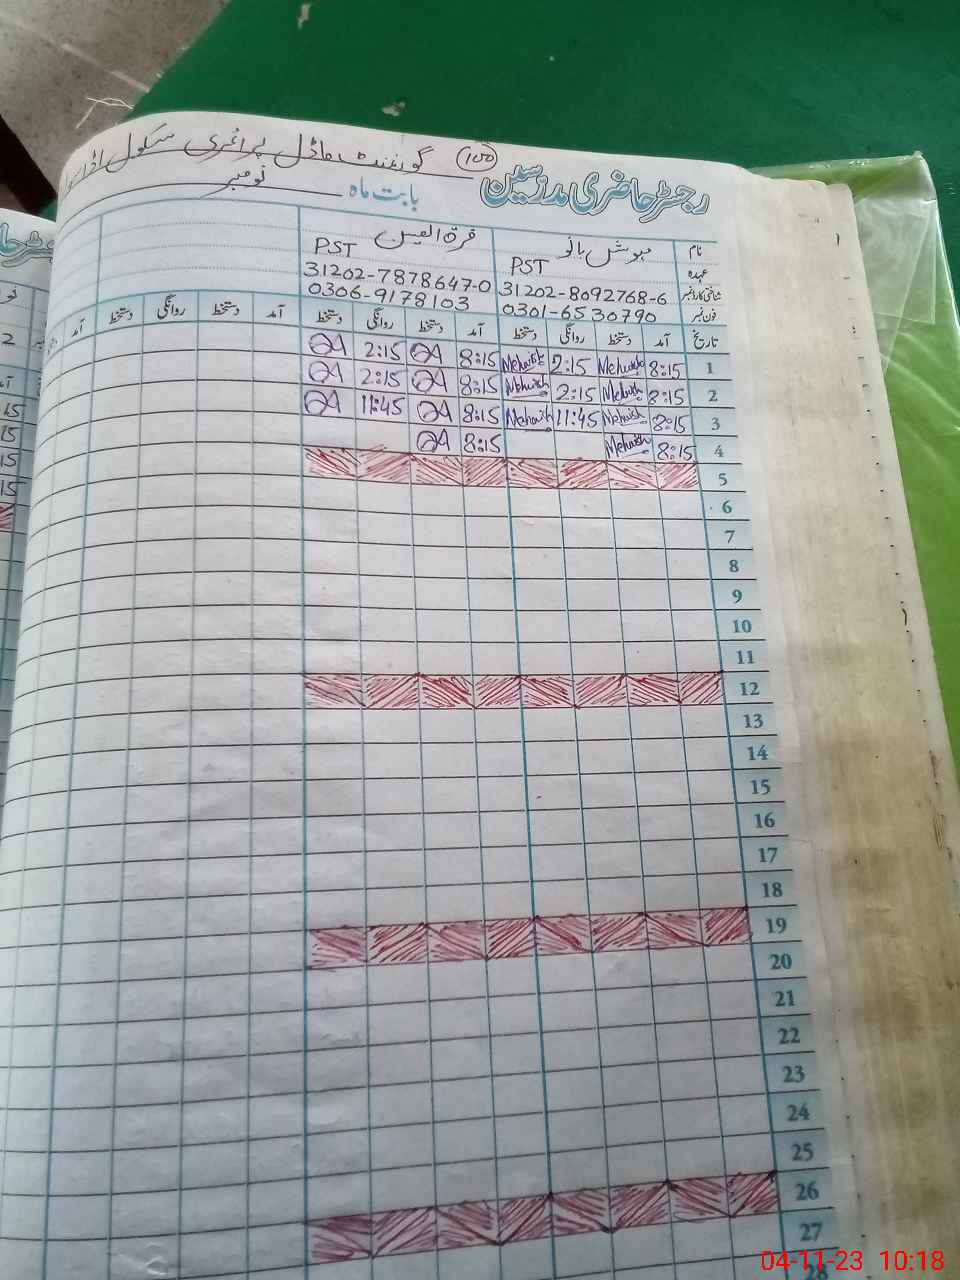 گورنمنٹ ماڈل پرائمری سکول اڈا
100
رجسٹر حاضری مدرسین
بابت ماہ نومبر
نام مہوش بانو فرق العین
عہدہ PST PST
شناختی کارڈ نمبر 31202-8092768-6 31202-7878647-0
فون نمبر 0301-6530790 0306-9178103
تاریخ آمد دستخط روانگی دستخط آمد دستخط روانگی دستخط آمد دستخط روانگی دستخط آمد
1 8:15 Mehwish 2:15 Mehwish 8:15 QA 2:15 QA
2 8:15 Mehwish 2:15 Mehwish 8:15 QA 2:15 QA
3 8:15 Mehwish 11:45 Mehwish 8:15 QA 11:45 QA
4 8:15 Mehwish 8:15 QA
5
6
7
8
9
10
11
12
13
14
15
16
17
18
19
20
21
22
23
24
25
26
27
28
15
15
15
15
04-11-23 10:18